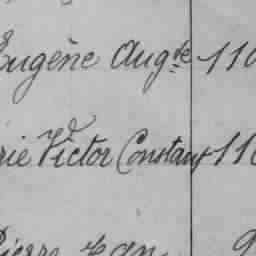 Eugène Aug.te 110
rie Victor Constant 110
Pierre Jean 9